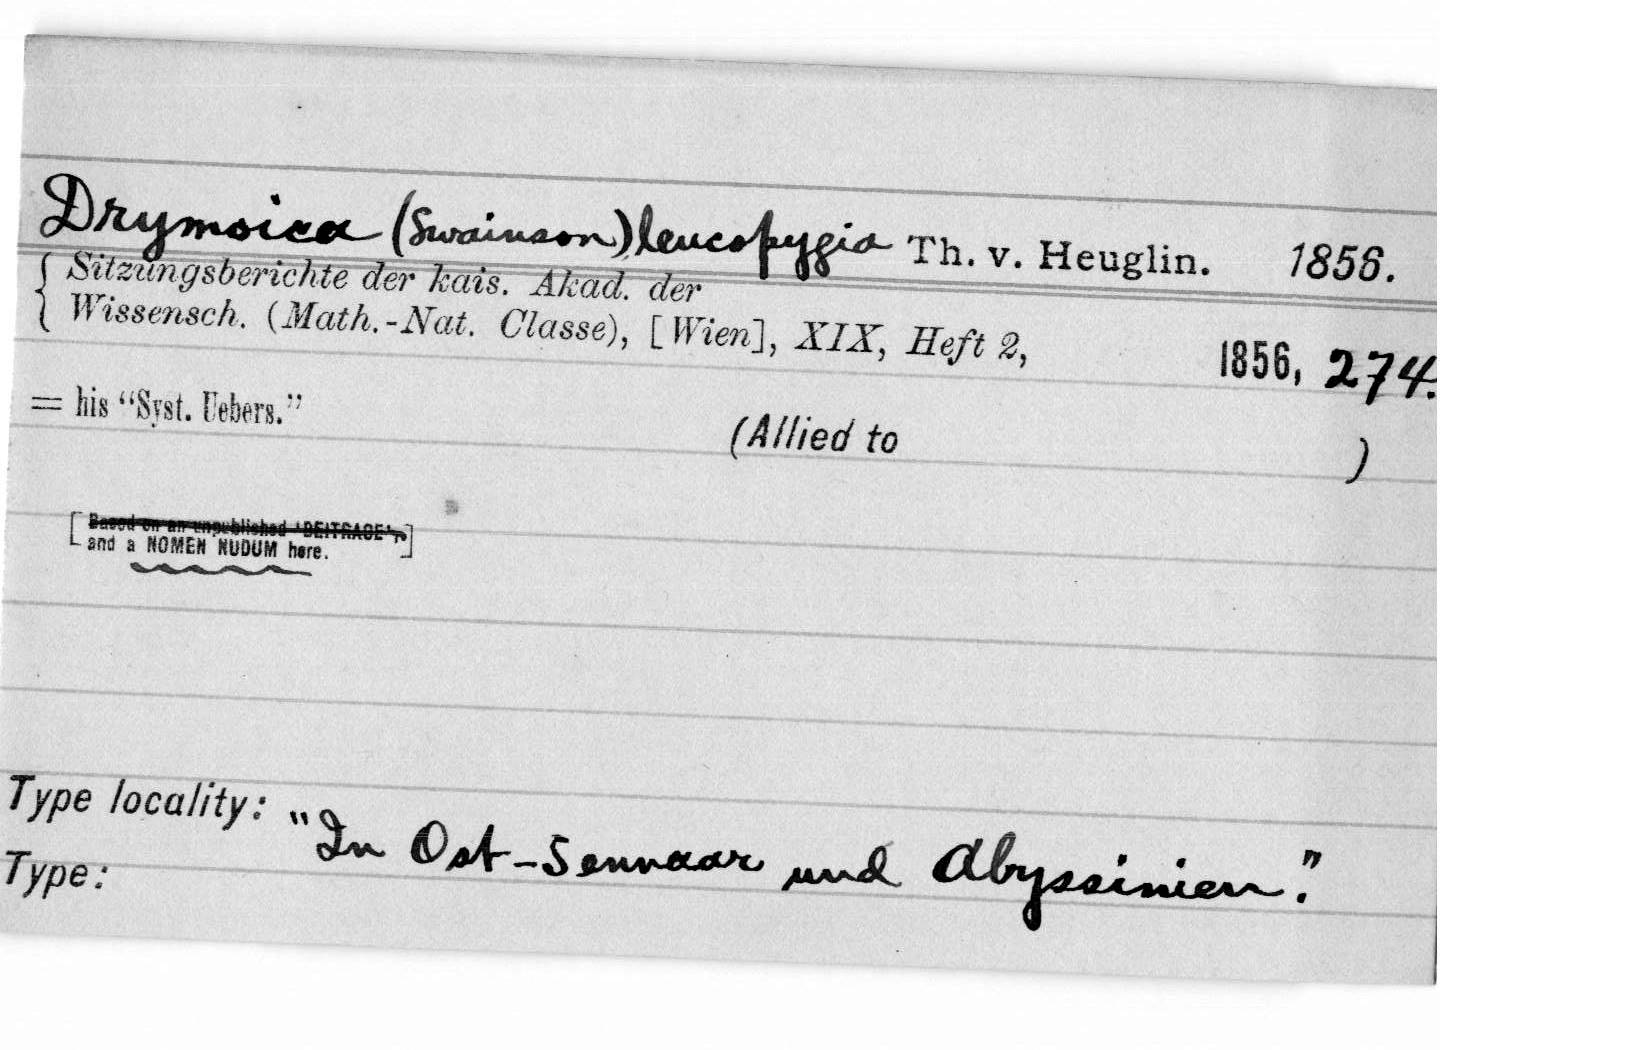 Drymoica (Swainson) leucopygia Th. v. Heuglin. 1856.
{ Sitzungsberichte der kais. Akad. der
Wissensch. (Math.-Nat. Classe), [Wien], XIX, Heft 2, 1856, 274.
= his “Syst. Uebers.”
(Allied to )
[Based on an unpublished 'BEITRAGE',
and a NOMEN NUDUM here.]
Type locality: "In Ost-Sennaar und Abyssinien."
Type: